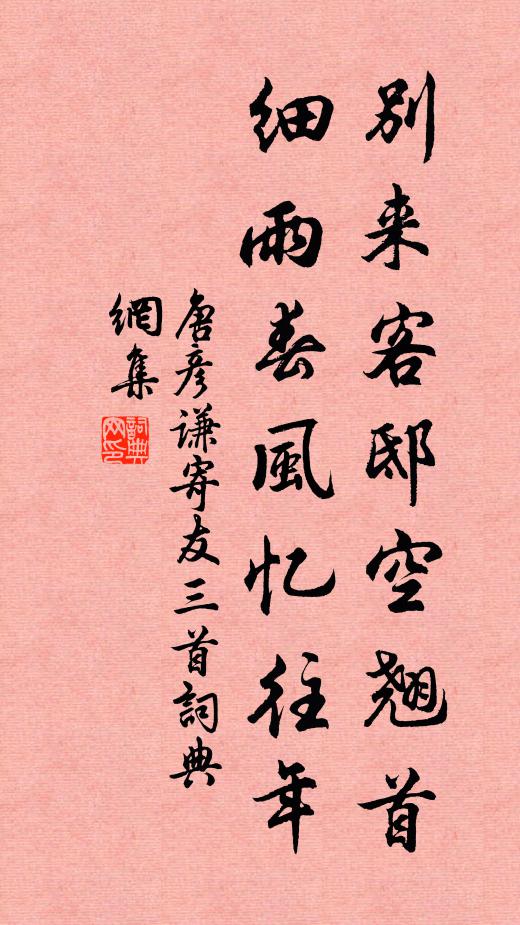 別来客邸空翘首
细雨春風忆往年
唐彦谦寄友三首詞典
網集
詞典
网印